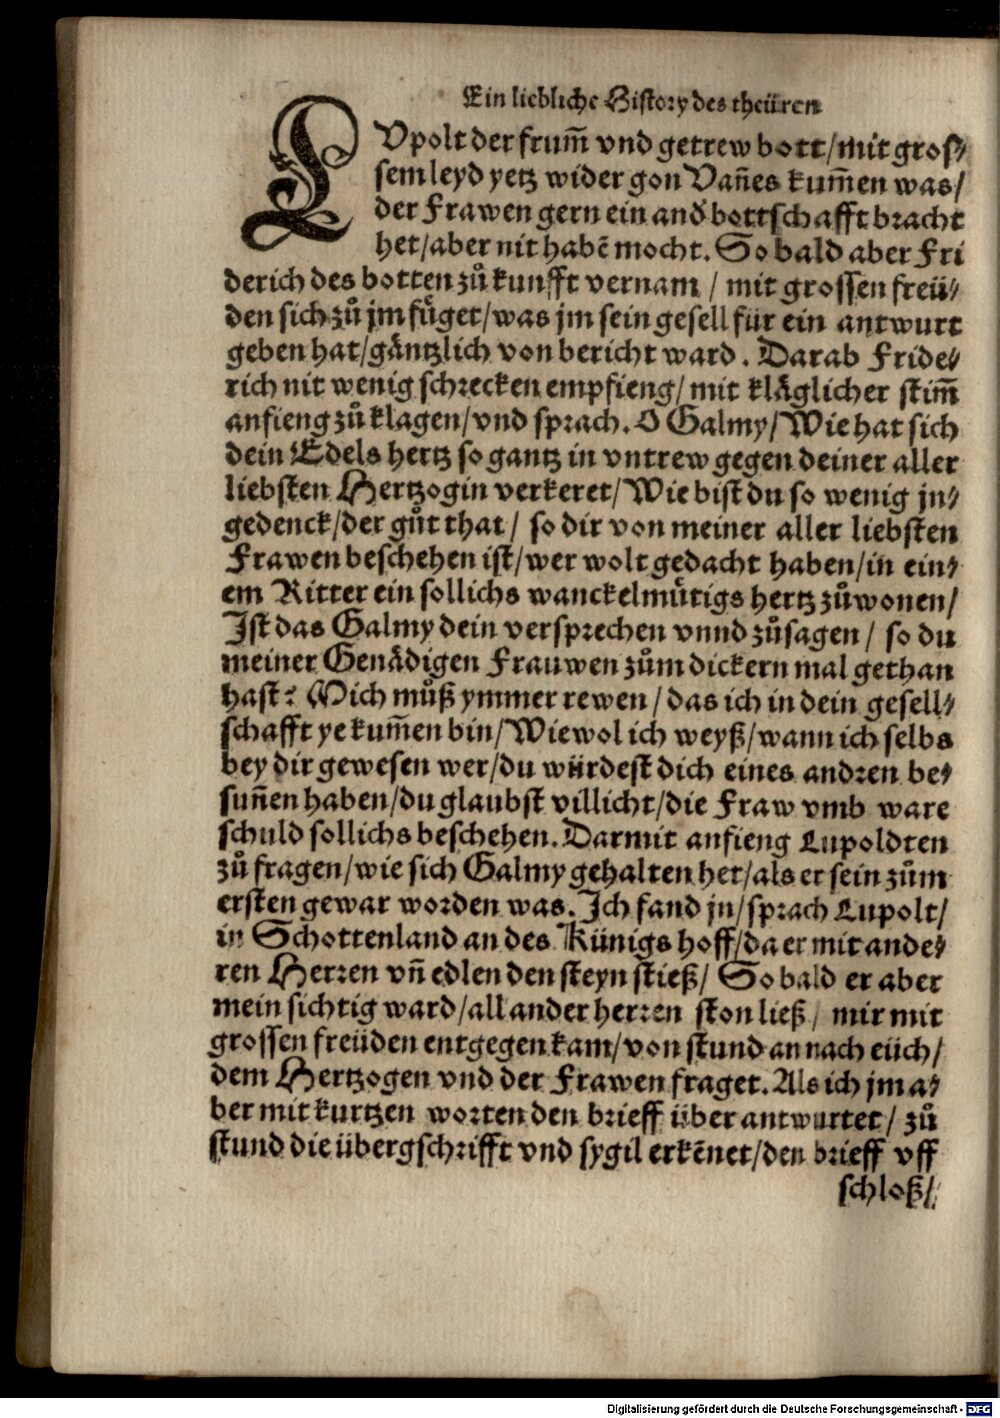 Ein liebliche History des theüren
LVpolt der frum̄ vnd getrew bott/mit gros⸗
sem leyd yetz wider gon Vañes kum̄en was/
der Frawen gern ein and̕ bottschafft bracht
het/aber nit habē mocht. So bald aber Fri
derich des botten zůkunfft vernam / mit grossen freü⸗
den sich zů jm fůget/was jm sein gesell für ein antwurt
geben hat/gäntzlich von bericht ward. Darab Fride⸗
rich nit wenig schrecken empfieng/mit kläglicher stim̄
anfieng zů klagen/vnd sprach. O Galmy/Wie hat sich
dein Edels hertz so gantz in vntrew gegen deiner aller
liebsten Hertzogin verkeret/Wie bist du so wenig jn⸗
gedenck/der gůt that / so dir von meiner aller liebsten
Frawen beschehen ist/wer wolt gedacht haben/in ein⸗
em Ritter ein sollichs wanckelmůtigs hertz zůwonen/
Ist das Galmy dein versprechen vnnd zůsagen / so du
meiner Genädigen Frauwen zům dickern mal gethan
hast? Mich můß ymmer rewen / das ich in dein gesell⸗
schafft ye kum̄en bin/Wiewol ich weyß/wann ich selbs
bey dir gewesen wer/du würdest dich eines andren be⸗
suñen haben/du glaubst villicht/die Fraw vmb ware
schuld sollichs beschehen. Darmit anfieng Lupoldten
zů fragen/wie sich Galmy gehalten het/als er sein zům
ersten gewar worden was. Ich fand jn/sprach Lupolt/
in Schottenland an des Künigs hoff/da er mit ande⸗
ren Herren vñ edlen den steyn stieß/ So bald er aber
mein sichtig ward/all ander herren ston ließ / mir mit
grossen freüden entgegen kam/von stund an nach eüch/
dem Hertzogen vnd der Frawen fraget. Als ich jm a⸗
ber mit kurtzen worten den brieff über antwurtet/ zů
stund die übergschrifft vnd sygil erkēnet/den brieff vff
schloß/
Digitalisierung gefördert durch die Deutsche Forschungsgemeinschaft - DFG